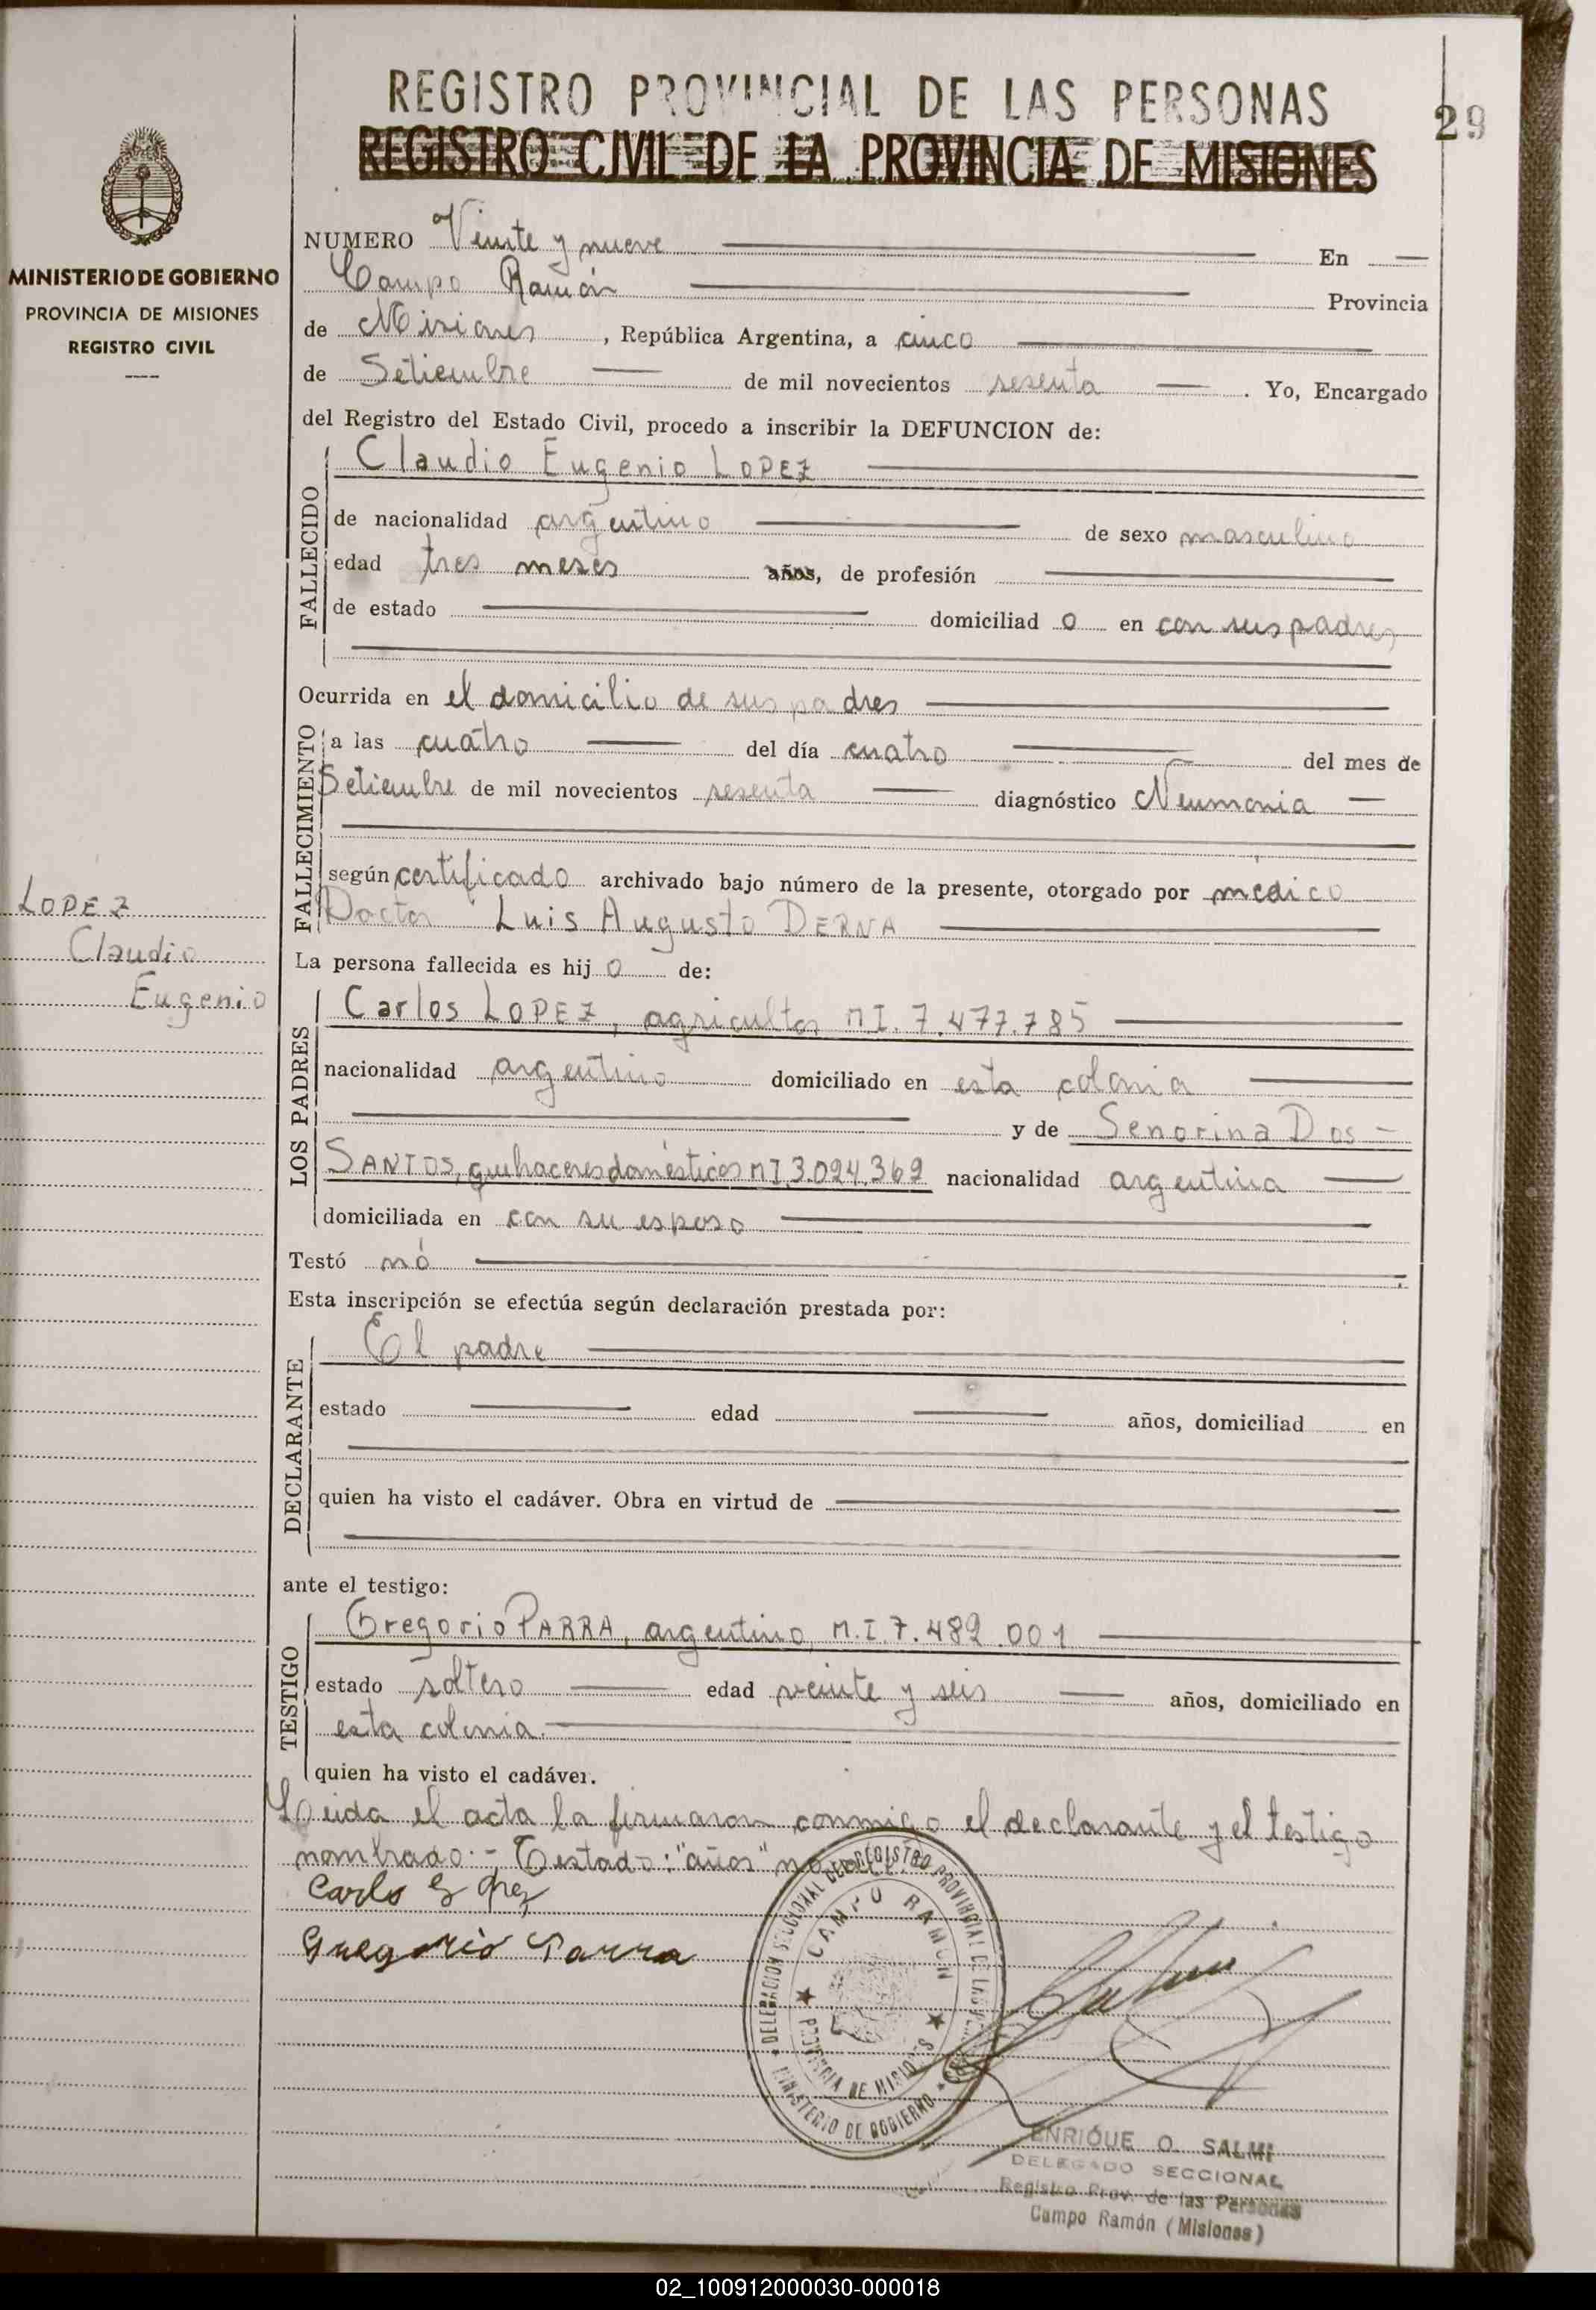 REGISTRO PROVINCIAL DE LAS PERSONAS
29
REGISTRO CIVIL DE LA PROVINCIA DE MISIONES
MINISTERIO DE GOBIERNO
PROVINCIA DE MISIONES
REGISTRO CIVIL
NUMERO Veinte y nueve En
Campo Ramón Provincia
de Misiones, República Argentina, a cinco
de Setiembre de mil novecientos sesenta. Yo, Encargado
del Registro del Estado Civil, procedo a inscribir la DEFUNCION de:
FALLECIDO
Claudio Eugenio LOPEZ
de nacionalidad argentino de sexo masculino
edad tres meses años, de profesión
de estado domiciliad o en con sus padres
Ocurrida en el domicilio de sus padres
FALLECIMIENTO
a las cuatro del día cuatro del mes de
Setiembre de mil novecientos sesenta diagnóstico Neumonia
según certificado archivado bajo número de la presente, otorgado por medico
Doctor Luis Augusto DERNA
LOPEZ
Claudio
Eugenio
La persona fallecida es hij o de:
LOS PADRES
Carlos LOPEZ, agricultor M I. 7.477.785
nacionalidad argentino domiciliado en esta colonia
y de Senorina Dos -
SANTOS, quehaceres domésticos M I 3.024.369 nacionalidad argentina
domiciliada en con su esposo
Testó nó
Esta inscripción se efectúa según declaración prestada por:
DECLARANTE
El padre
estado edad años, domiciliad en
quien ha visto el cadáver. Obra en virtud de
ante el testigo:
TESTIGO
Gregorio PARRA, argentino, M.I. 7.482.001
estado soltero edad veinte y seis años, domiciliado en
esta colonia.
quien ha visto el cadáver.
Leida el acta la firmaron conmigo el declarante y el testigo
nombrado.- Testado: "años" no
Carlo
Gregorio Parra
DELEGACION SECCIONAL DEL REGISTRO PROVINCIAL DE LAS
CAMPO RAMON
PROVINCIA DE MISIONES
MINISTERIO DE GOBIERNO
ENRIQUE O. SALMI
DELEGADO SECCIONAL
Registro Prov. de las Personas
Campo Ramón (Misiones)
02_100912000030-000018